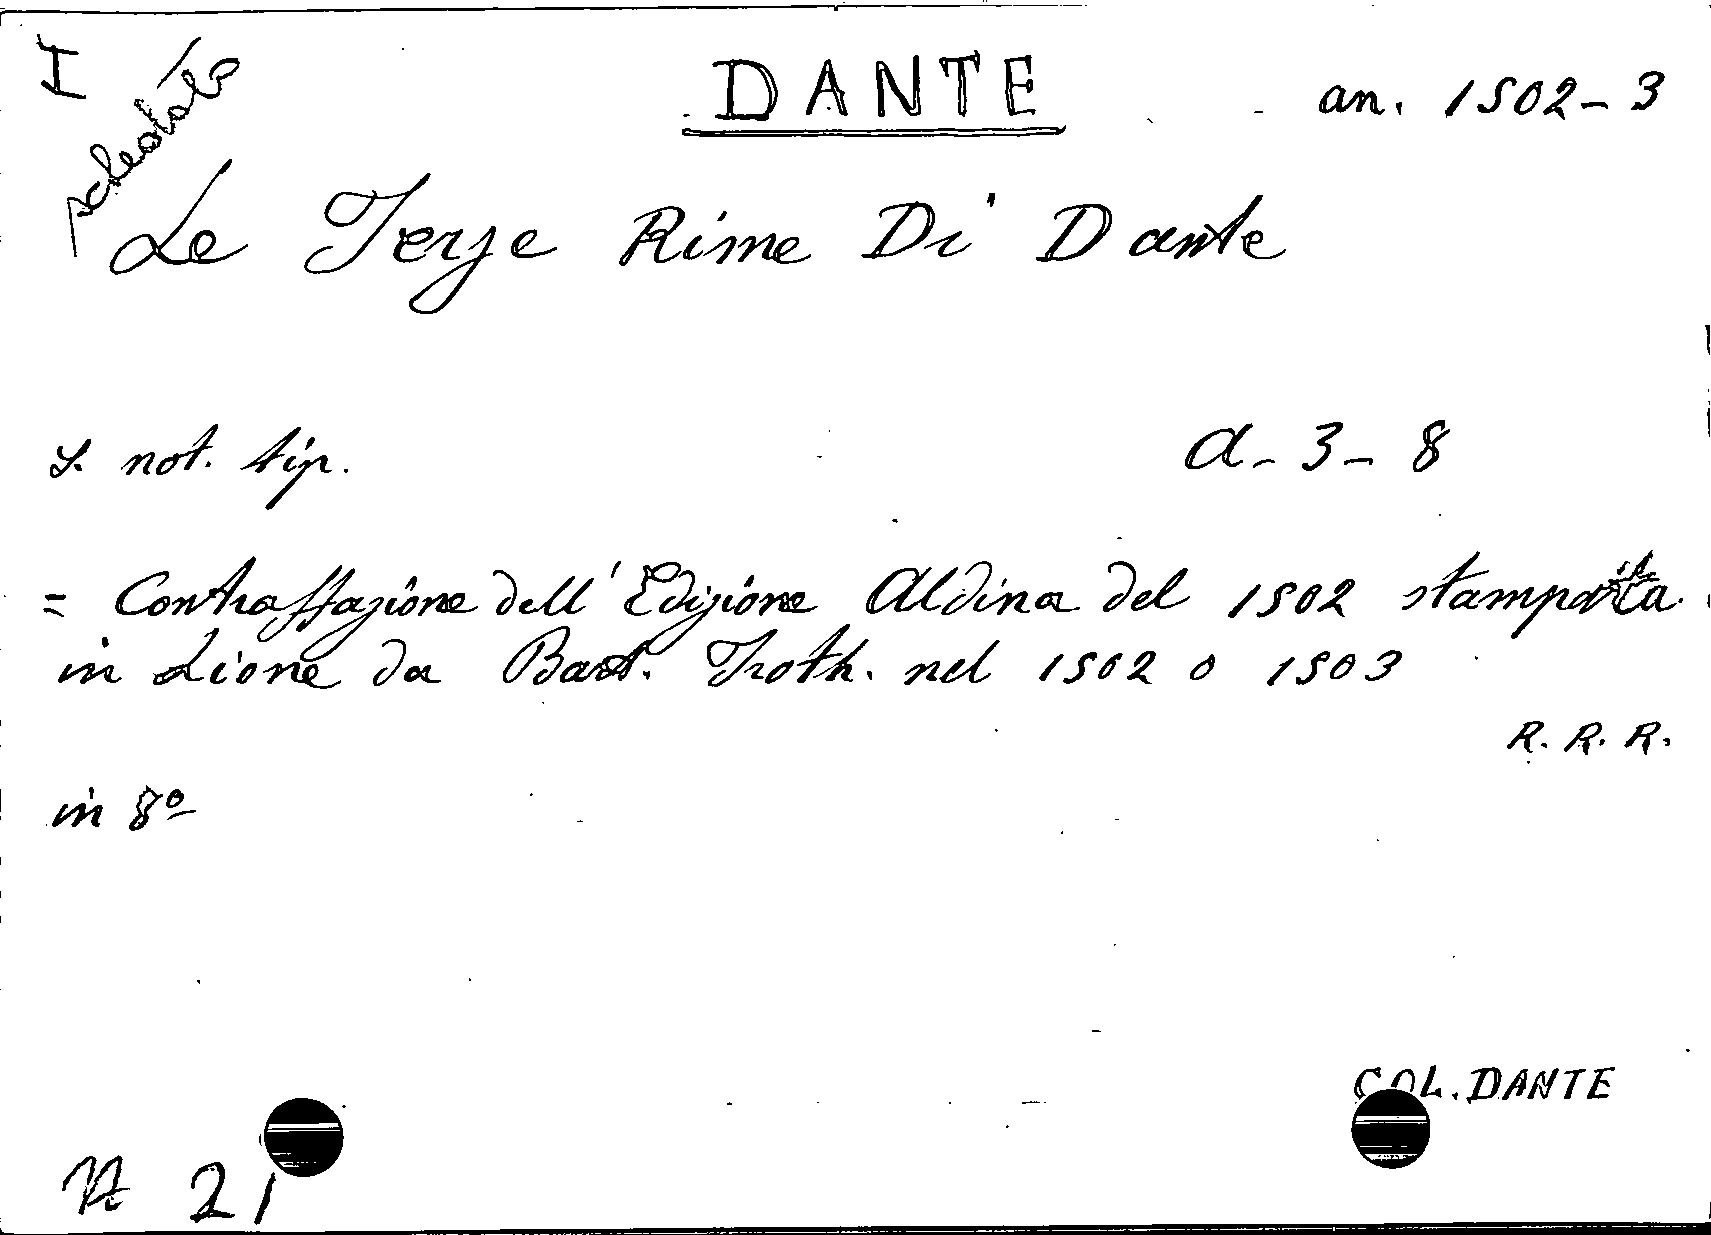 I
DANTE
an. 1502-3
Le Terze Rime Di Dante
s. not. tip.
a-3-8
= Contraffazione dell'Edizione Aldina del 1502 stampata
in Lione da Bart. Troth. nel 1502 o 1503
R. R. R.
in 8º
COL. DANTE
21